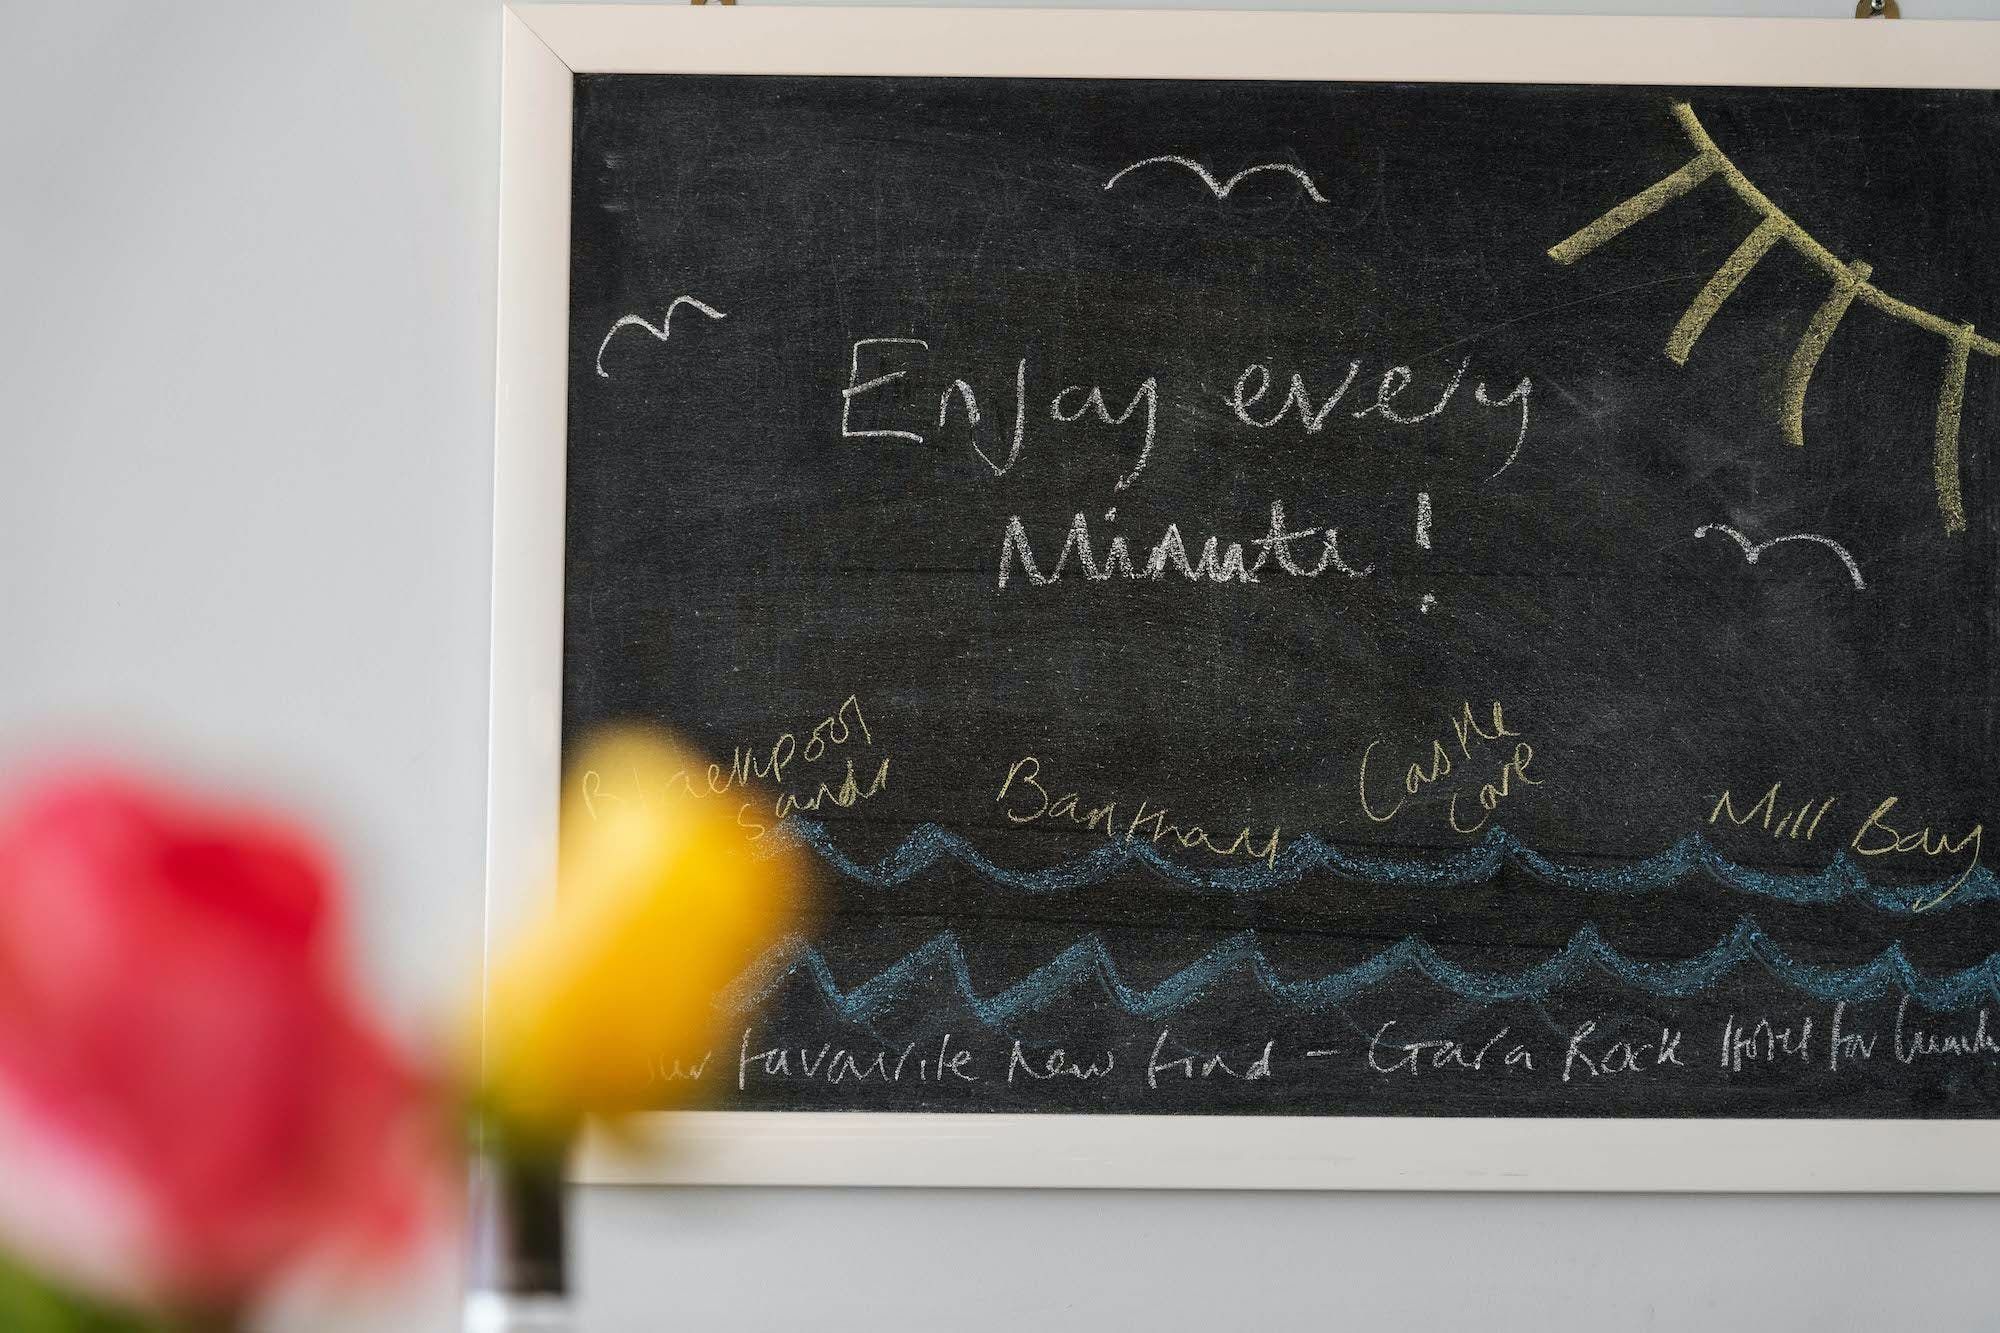 Enjoy every
Minute!
Blackpool
Sands
Bantham
Castle
Cove
Mill Bay
our favourite new find - Gara Rock Hotel for lunch